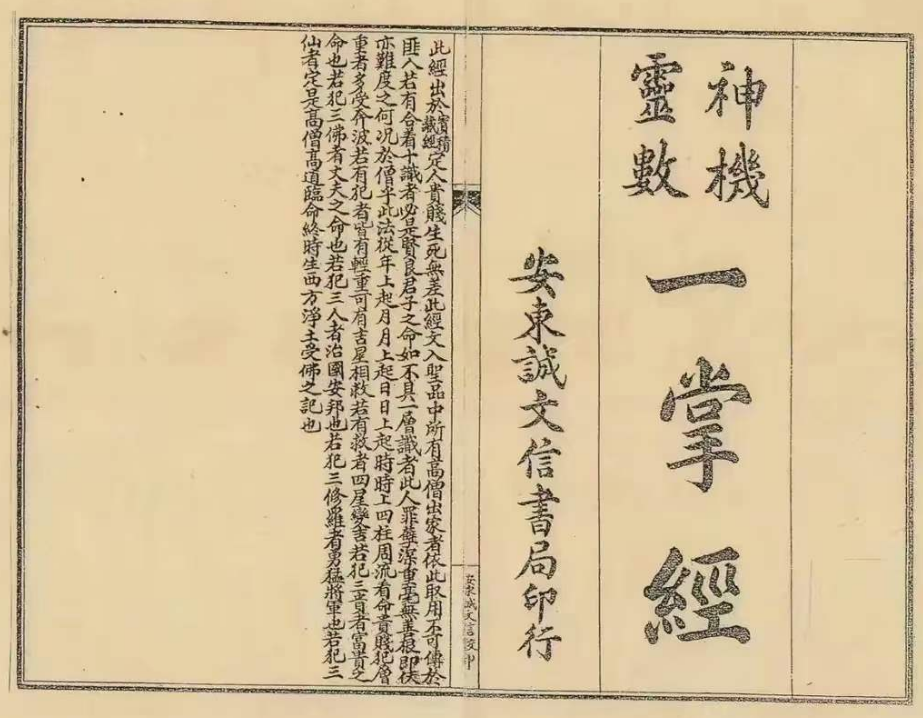 神機
靈數
一掌經
安東誠文信書局印行
安東誠文信 印
此經出於寶積藏經定人貴賤生死無差此經文入聖品中所有高僧出家者依此取用不可傳於
匪人若有合着十識者必是賢良君子之命如不具一層識者此人罪孽深重毫無善根即仸
亦難度之何況於僧乎此法從年上起月月上起日日上起時時上四柱周流看命貴賤犯層
重者多受奔波若有犯者皆有輕重可有吉星相救若有救者四星變吉若犯三 者富貴之
命也若犯三佛者丈夫之命也若犯三人者治國安邦也若犯三修羅者勇猛將軍也若犯三
仙者定是高僧高道臨命終時生西方淨土受佛之記也